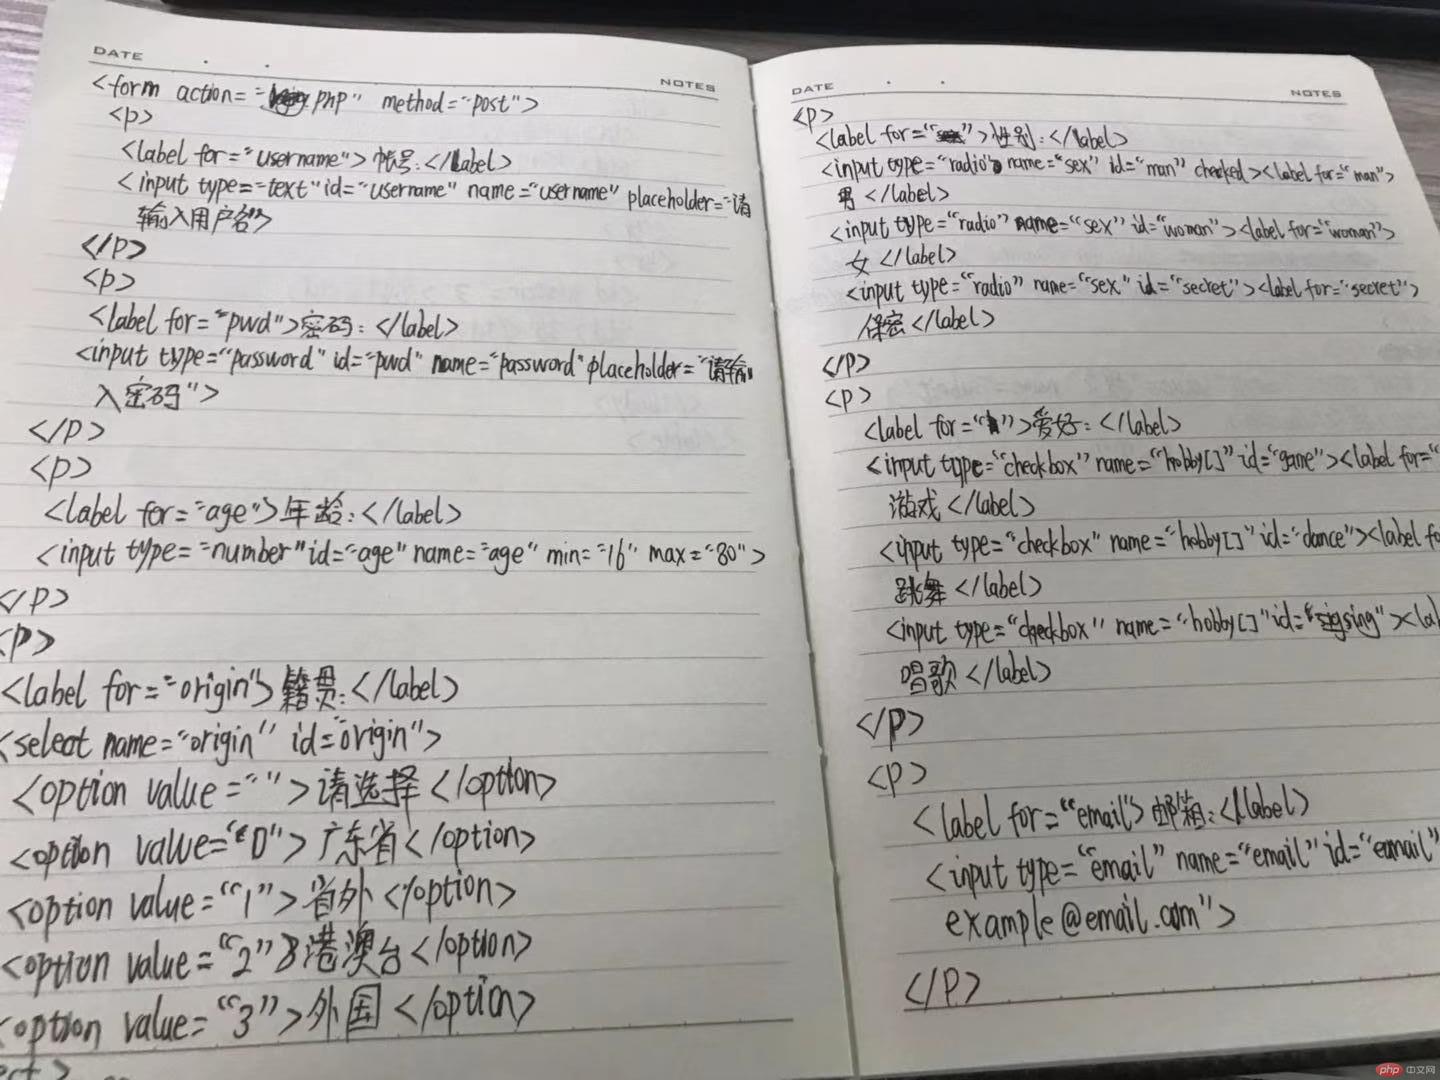 DATE
NOTES
<form action=".php" method="post">
<p>
<label for="username">帐号:</label>
<input type="text" id="username" name="username" placeholder="请
输入用户名">
</p>
<p>
<label for="pwd">密码:</label>
<input type="password" id="pwd" name="password" placeholder="请输
入密码">
</p>
<p>
<label for="age">年龄:</label>
<input type="number" id="age" name="age" min="16" max="80">
</p>
<p>
<label for="origin">籍贯:</label>
<select name="origin" id="origin">
<option value="">请选择</option>
<option value="0">广东省</option>
<option value="1">省外</option>
<option value="2">港澳台</option>
<option value="3">外国</option>
ect>
DATE
NOTES
<p>
<label for="">性别:</label>
<input type="radio" name="sex" id="man" checked><label for="man">
男</label>
<input type="radio" name="sex" id="woman"><label for="woman">
女</label>
<input type="radio" name="sex" id="secret"><label for="secret">
保密</label>
</p>
<p>
<label for="">爱好:</label>
<input type="checkbox" name="hobby[]" id="game"><label for="
游戏</label>
<input type="checkbox" name="hobby[]" id="dance"><label fo
跳舞</label>
<input type="checkbox" name="hobby[]" id="sing"><lab
唱歌</label>
</p>
<p>
<label for="email">邮箱:</label>
<input type="email" name="email" id="eamail"
example@email.com">
</p>
php 中文网